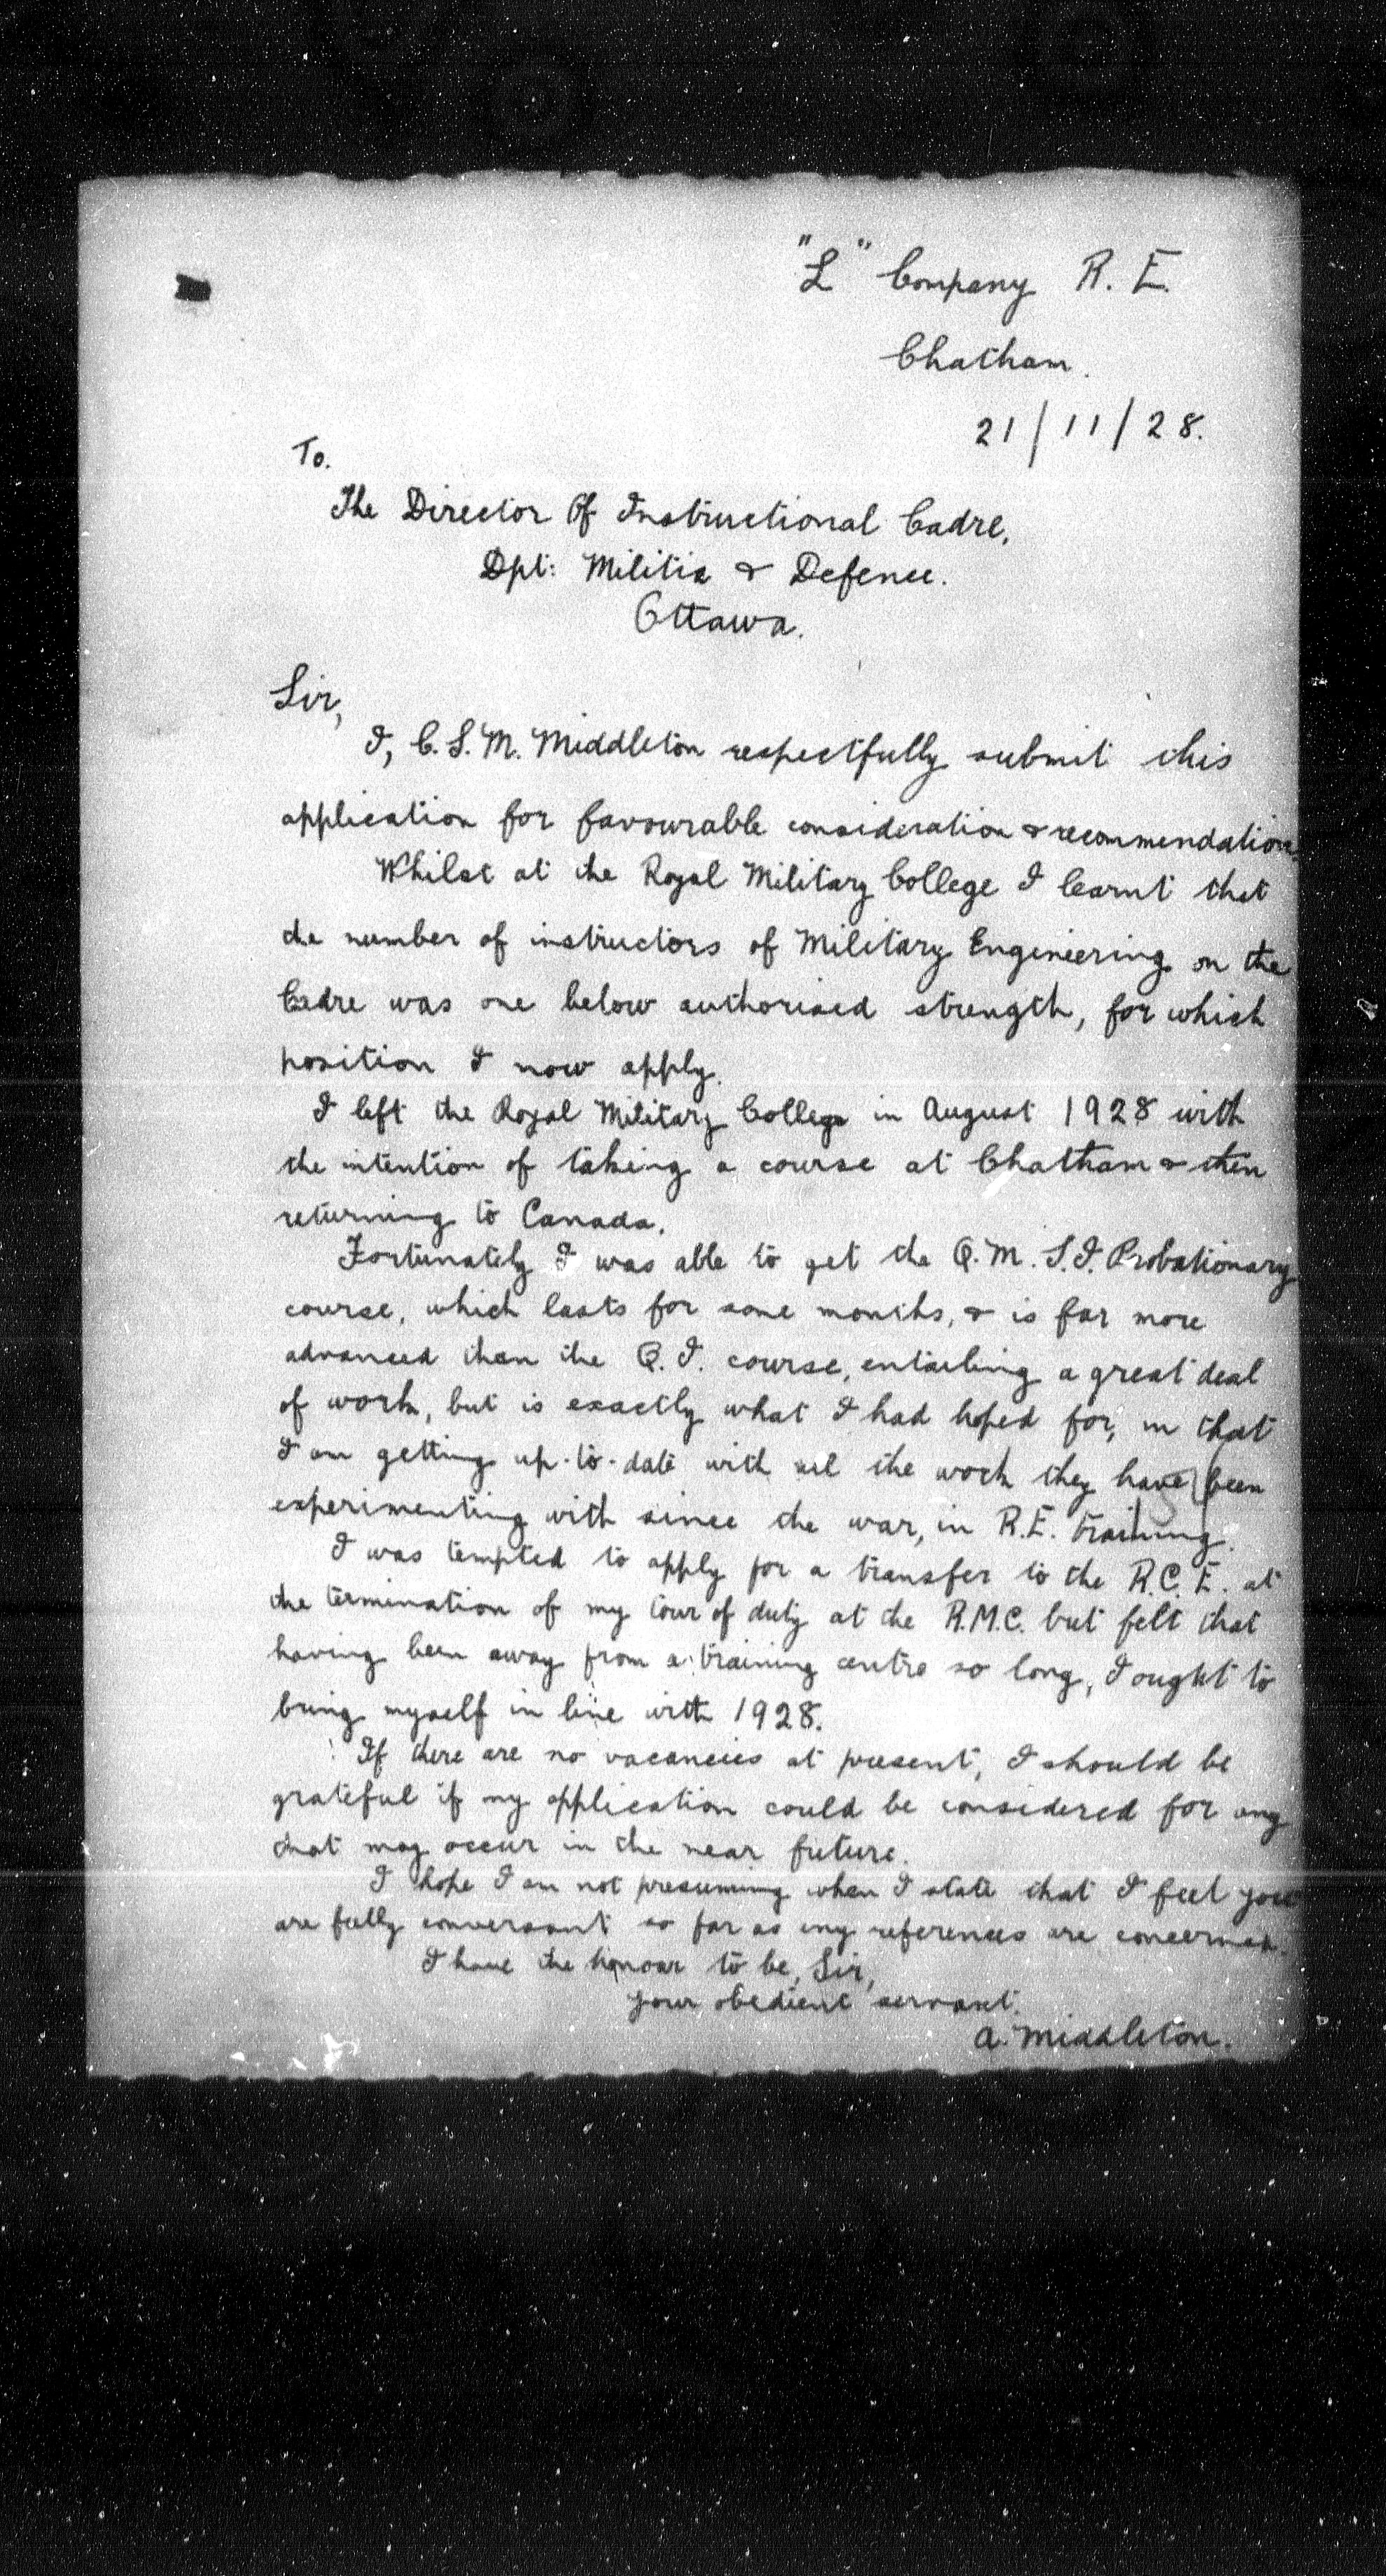 "L" Company R. E.
Chatham.
21/11/28.
To.
The Director Of Instructional Cadre,
Dpt: Militia & Defence.
Ottawa.
Sir,
I, C. S. M. Middleton respectfully submit this
application for favourable consideration & recommendation.
Whilst at the Royal Military College I learnt that
the number of instructors of Military Engineering on the
Cadre was one below authorised strength, for which
position I now apply.
I left the Royal Military College in August 1928 with
the intention of taking a course at Chatham & then
returning to Canada.
Fortunately I was able to get the Q. M. S. I. Probationary
course, which lasts for some months, & is far more
advanced than the Q. I. course, entailing a great deal
of work, but is exactly what I had hoped for, in that
I am getting up-to-date with all the work they have been
experimenting with since the war, in R.E. training.
I was tempted to apply for a transfer to the R.C.E. at
the termination of my tour of duty at the R.M.C. but felt that
having been away from a training centre so long, I ought to
bring myself in line with 1928.
If there are no vacancies at present, I should be
grateful if my application could be considered for any
that may occur in the near future.
I hope I am not presuming when I state that I feel you
are fully conversant so far as my references are concerned.
I have the honour to be, Sir,
your obedient servant.
A. Middleton.